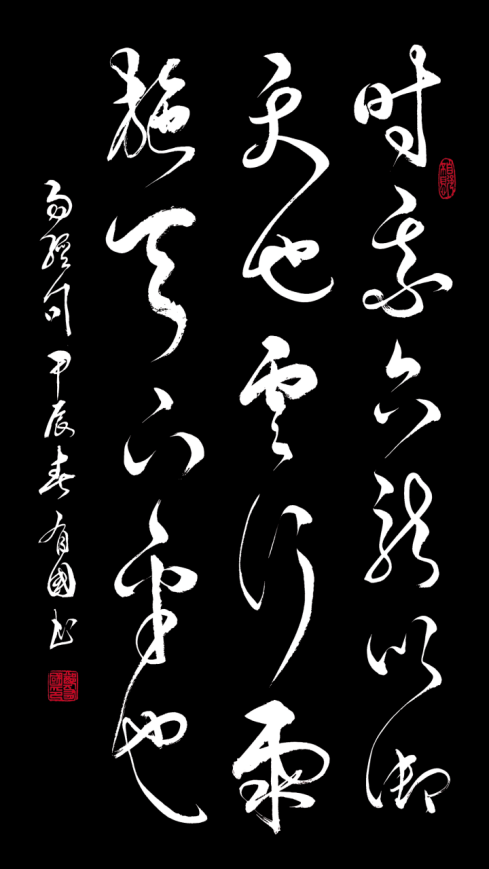 时乘六龍以御
天也雲行雨
施天下平也
易經句 甲辰春 有國书